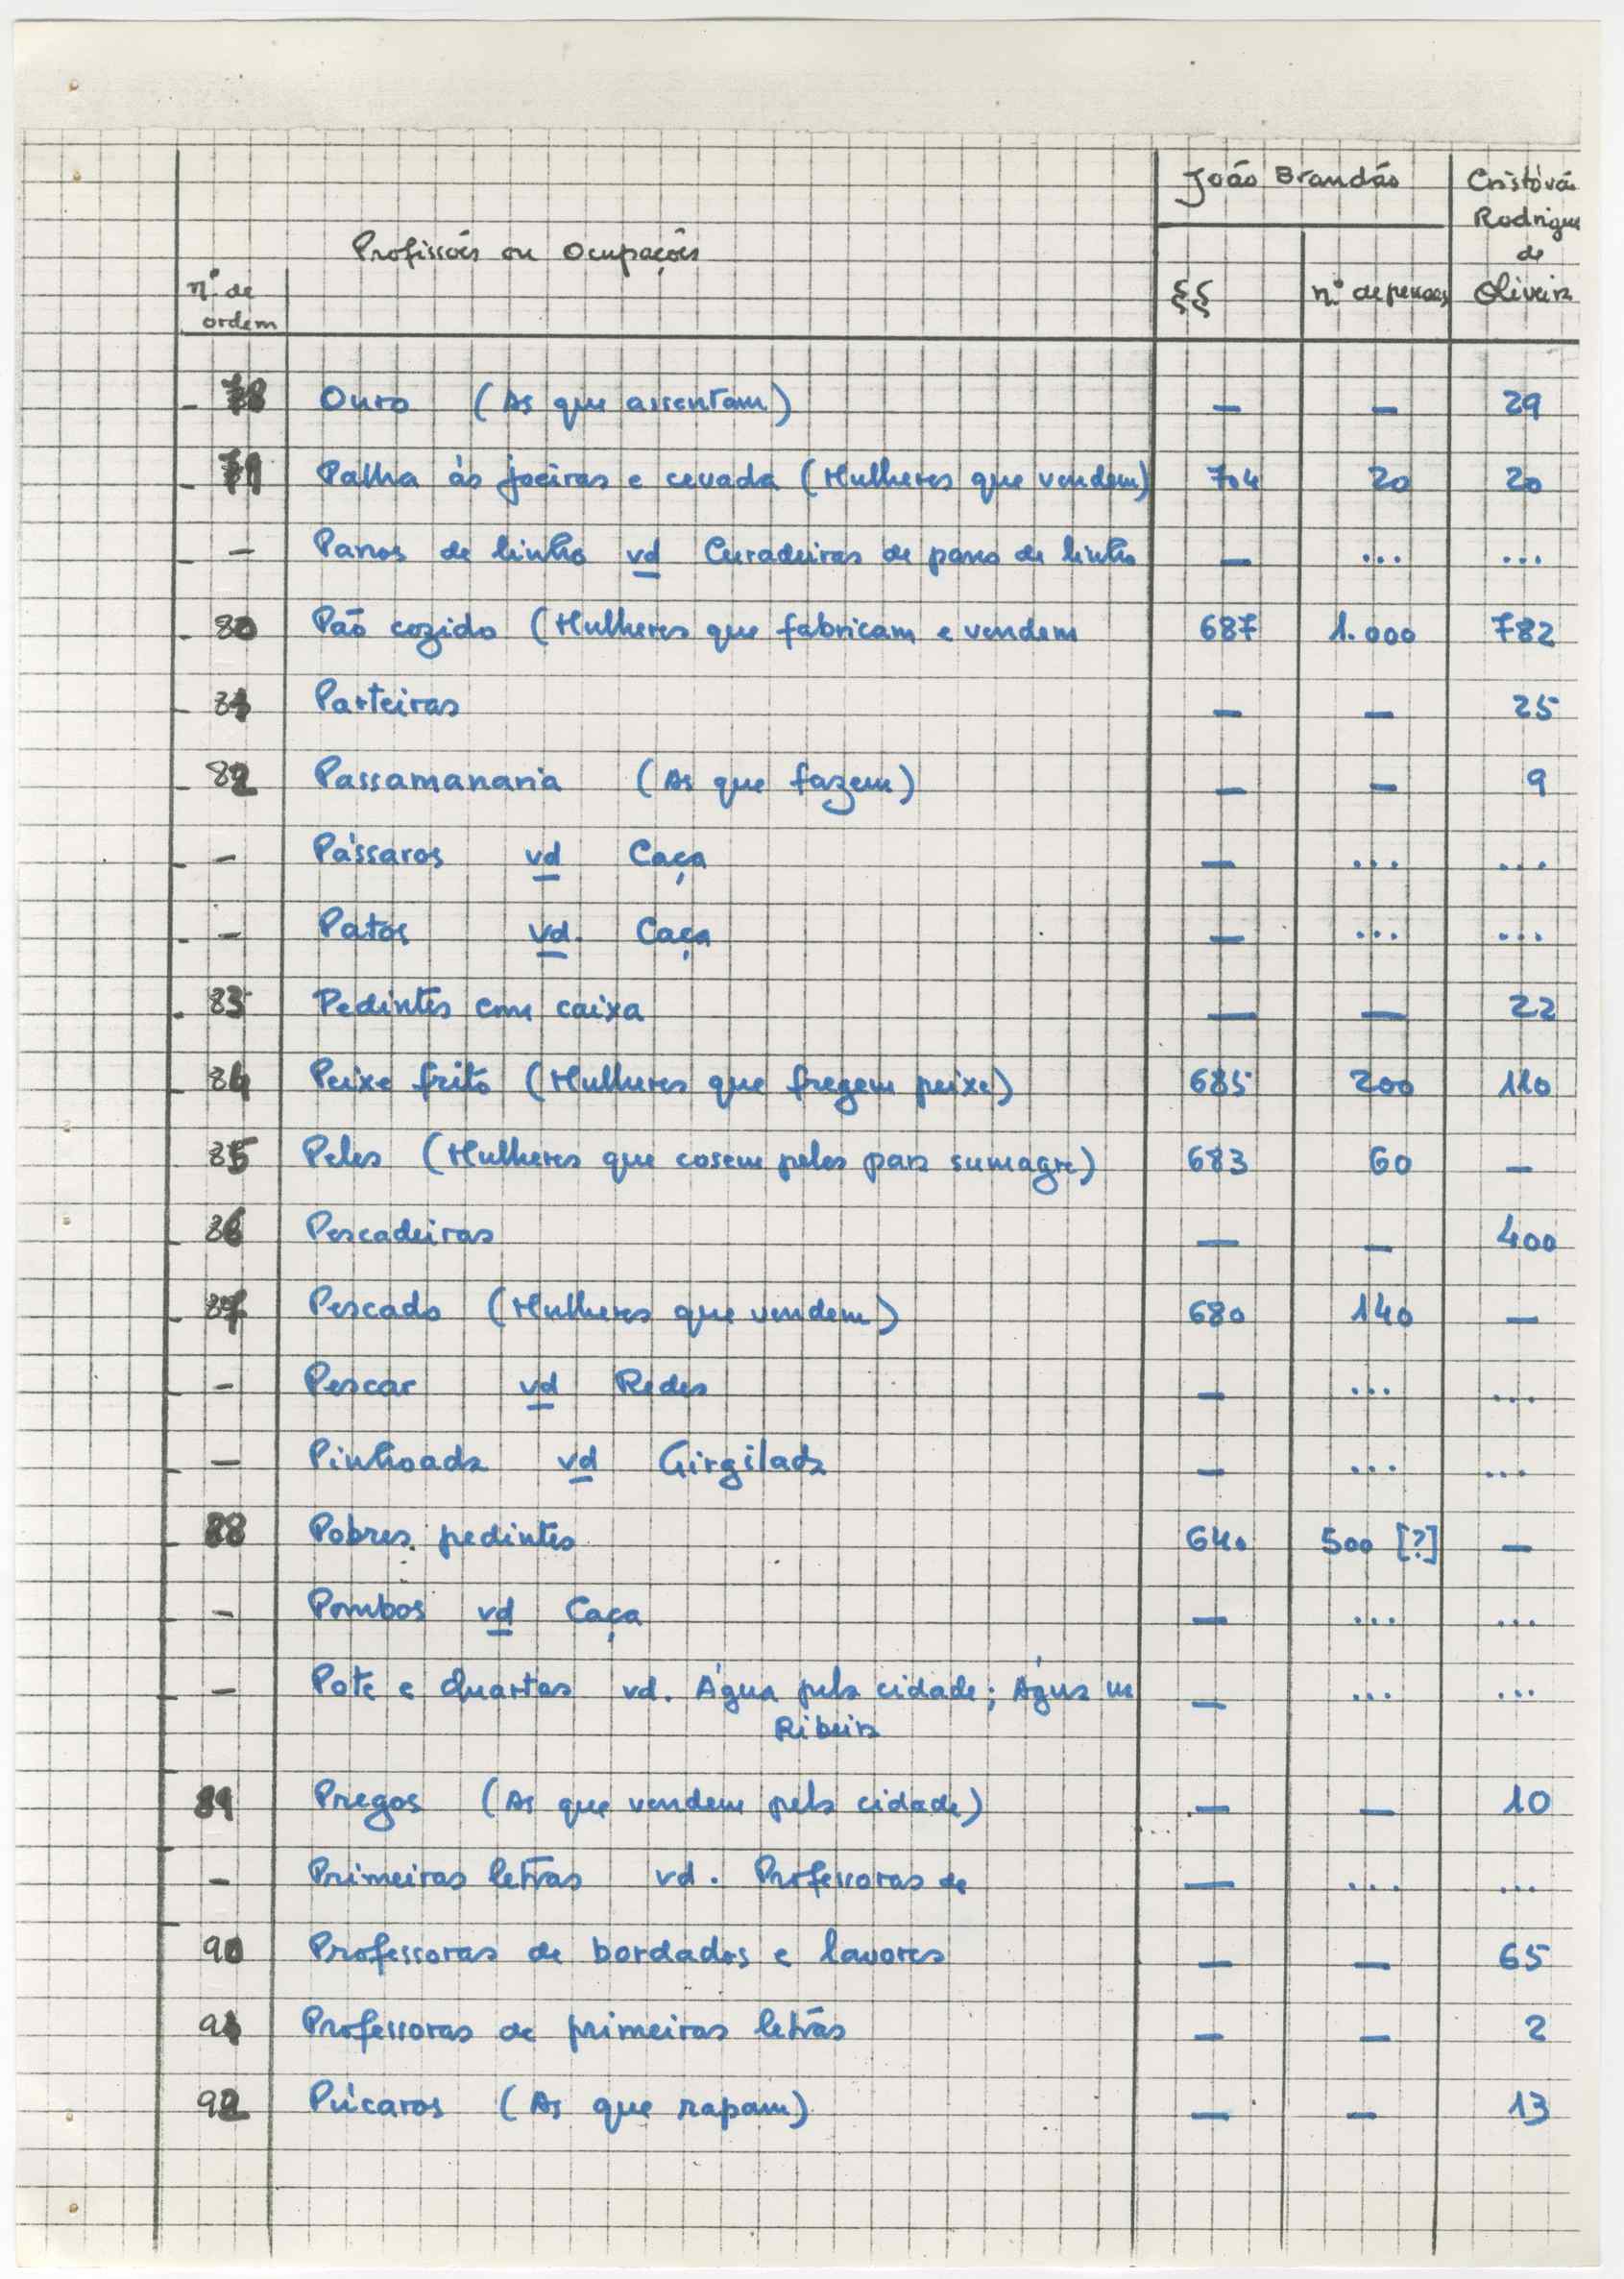 João Brandão Cristóvão
Rodrigues
Profissões ou Ocupações de
nº de §§ nº de pessoas Oliveira
ordem
- 78 Ouro (As que assentam) — — 29
- 79 Palha às joeiras e cevada (Mulheres que vendem) 704 20 20
- — Panos de linho vd Curadeiras de pano de linho — ... ...
- 80 Pão cozido (Mulheres que fabricam e vendem 687 1.000 782
- 81 Parteiras — — 25
- 82 Passamanaria (As que fazem) — — 9
- — Pássaros vd Caça — ... ...
- — Patos vd. Caça — ... ...
- 83 Pedintes com caixa — — 22
- 84 Peixe frito (Mulheres que fregem peixe) 685 200 110
- 85 Peles (Mulheres que cosem peles para sumagre) 683 60 —
- 86 Pescadeiras — — 400
- 87 Pescado (Mulheres que vendem) 680 140 —
- — Pescar vd Redes — ... ...
- — Pinhoada vd Girgilada — ... ...
- 88 Pobres pedintes 640 500 [?] —
- — Pombos vd Caça — ... ...
- — Pote e Quartas vd. Água pela cidade; Água na — ... ...
Ribeira
89 Pregos (As que vendem pela cidade) — — 10
- Primeiras letras vd. Professoras de — ... ...
90 Professoras de bordados e lavores — — 65
91 Professoras de primeiras letras — — 2
92 Púcaros (As que rapam) — — 13